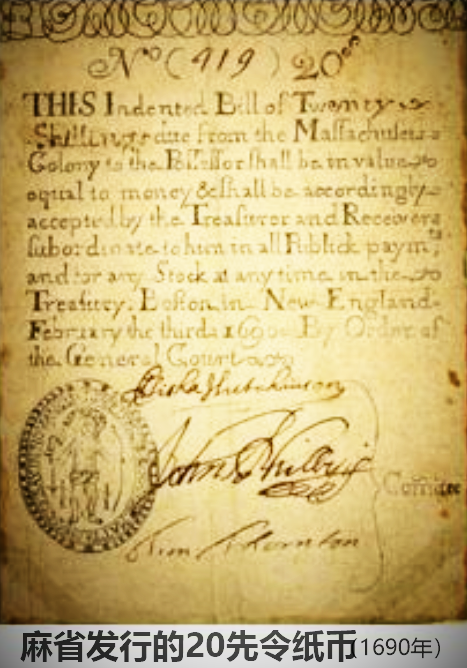 Nº (919) 20ˢ
THIS Indented Bill of Twenty
Shillings due from the Massachusets
Colony to the Possessor shall be in value
equal to money & shall be accordingly
accepted by the Treasurer and Receivers
subordinate to him in all Publick paymᵗˢ
and for any Stock at any time in the
Treasury. Boston in New England
February the third 1690 By Order of
the General Court
Elisha Hutchinson
John Phillips
Comittee
Tim Thornton
麻省发行的20先令纸币(1690年)